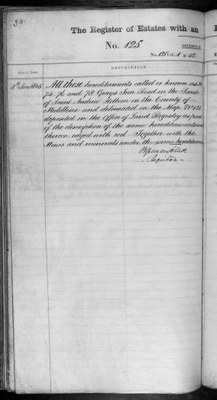 34
The Register of Estates with an
No. 125
DESCRIPTION
All these hereditaments called or known as
74 76 and 78 Grays Inn Road in the Parish
of Saint Andrew Holborn in the County of
Middlesex and delineated on the Map No
deposited in the Office of Land Registry as part
of the description of the same hereditaments
thereon edged with red. Together with the
Mines and minerals under the same hereditaments
Registrar